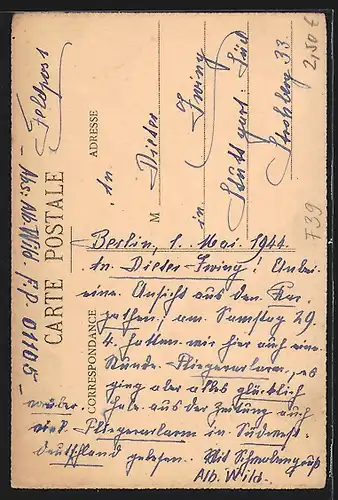 Feldpost
Abs: Alb. Wild, F.P. 01105
CARTE POSTALE
CORRESPONDANCE
ADRESSE
An
M Dieter
Irion
in
Stuttgart-Süd
Strohberg 33
2,50 €
F39
Berlin, 1. Mai 1944.
An Dieter Irion! Anbei
eine Ansicht aus den Kar-
pathen, am Samstag 29.
4. hatten wir hier auch eine
Stunde Fliegeralarm, es
ging aber alles glücklich
vorüber. Habe aus der Zeitung auch
viel Fliegeralarm in Südwest-
deutschland gelesen. Mit Schwabengruß
Alb. Wild.